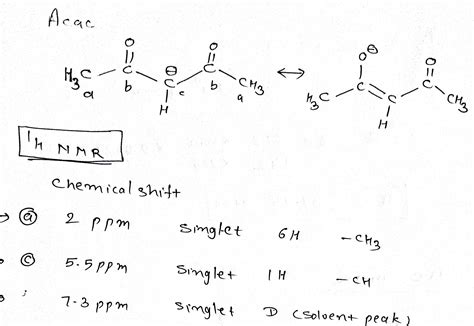 Acac
O O
H₃C b ⊖ c b CH₃
a H a
↔
O⊖ O
H₃C CH₃
H
¹H NMR
Chemical shift
→ ⓐ 2 ppm singlet 6H -CH₃
ⓒ 5.5ppm singlet 1H -CH
7.3 ppm singlet D (solvent peak)